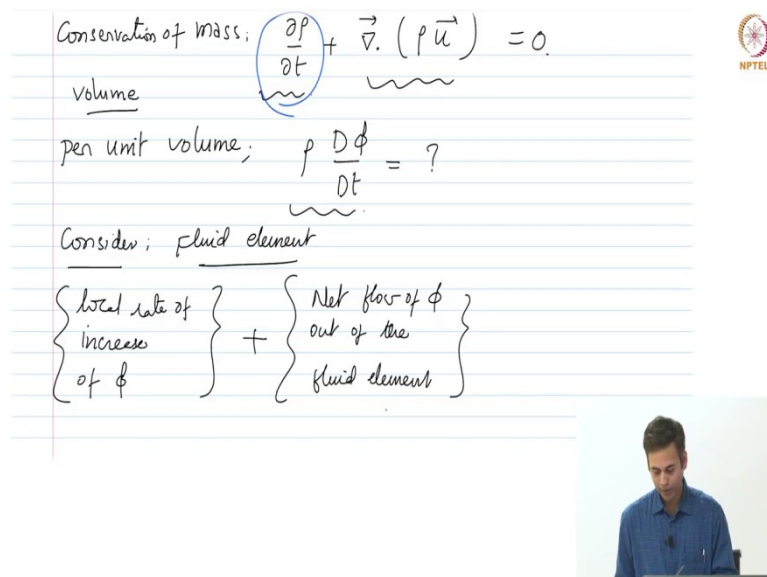 Conservation of mass: ∂ρ/∂t + ∇⃗. (ρu⃗) = 0.
NPTEL
volume
per unit volume; ρ Dϕ/Dt = ?
Consider; Fluid element
{local rate of increase of ϕ} + {Net flow of ϕ out of the fluid element}